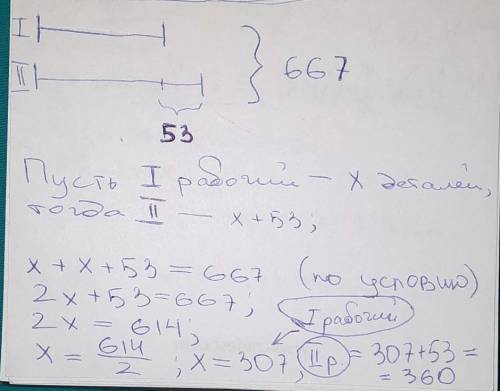 I
II
667
53
Пусть I рабочий — x деталей,
тогда II — x+53;
x + x + 53 = 667 (по условию)
2x+53=667;
2x = 614;
I рабочий
x = 614/2 ; x = 307, IIр = 307+53 =
= 360